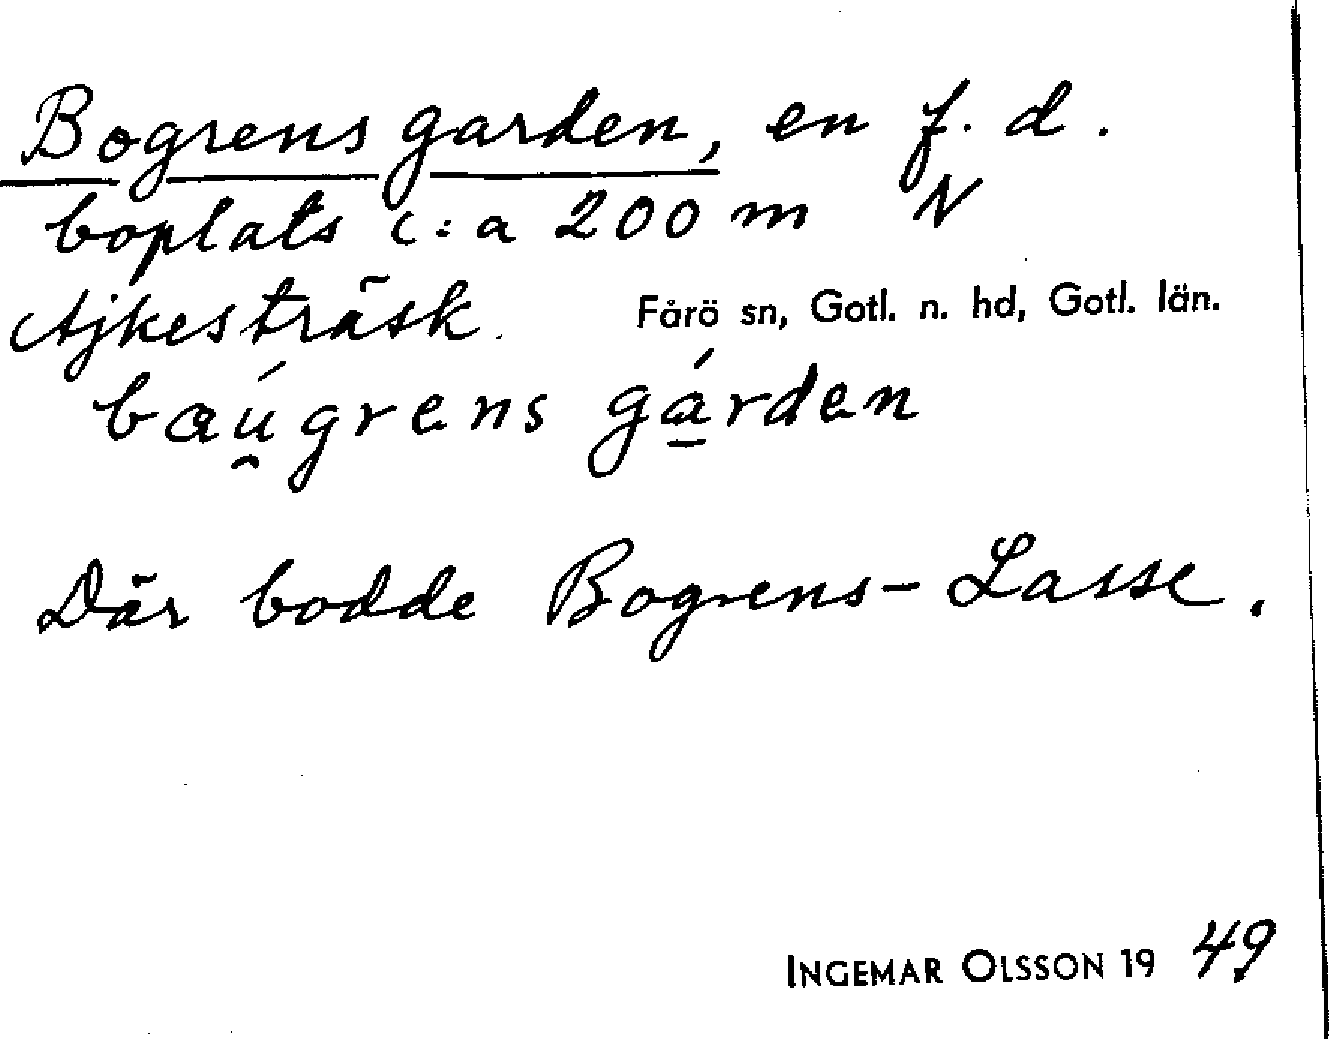 Bogrens garden, en f. d.
boplats c:a 200 m N
Ajkesträsk.
Fårö sn, Gotl. n. hd, Gotl. län.
baú̯grens gá̱rden
Där bodde Bogrens-Lasse.
INGEMAR OLSSON 19 49